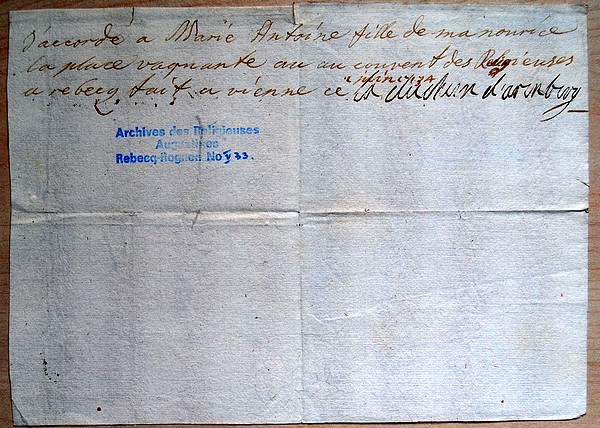 J'accorde a Marie Antoine fille de ma nourice
la place vaquante au au couvent des Religieuses
a rebecq fait a vienne ce juin 1734 la duchesse d'aremberg
Archives des Religieuses
Augustines
Rebecq-Rognon No V 33.